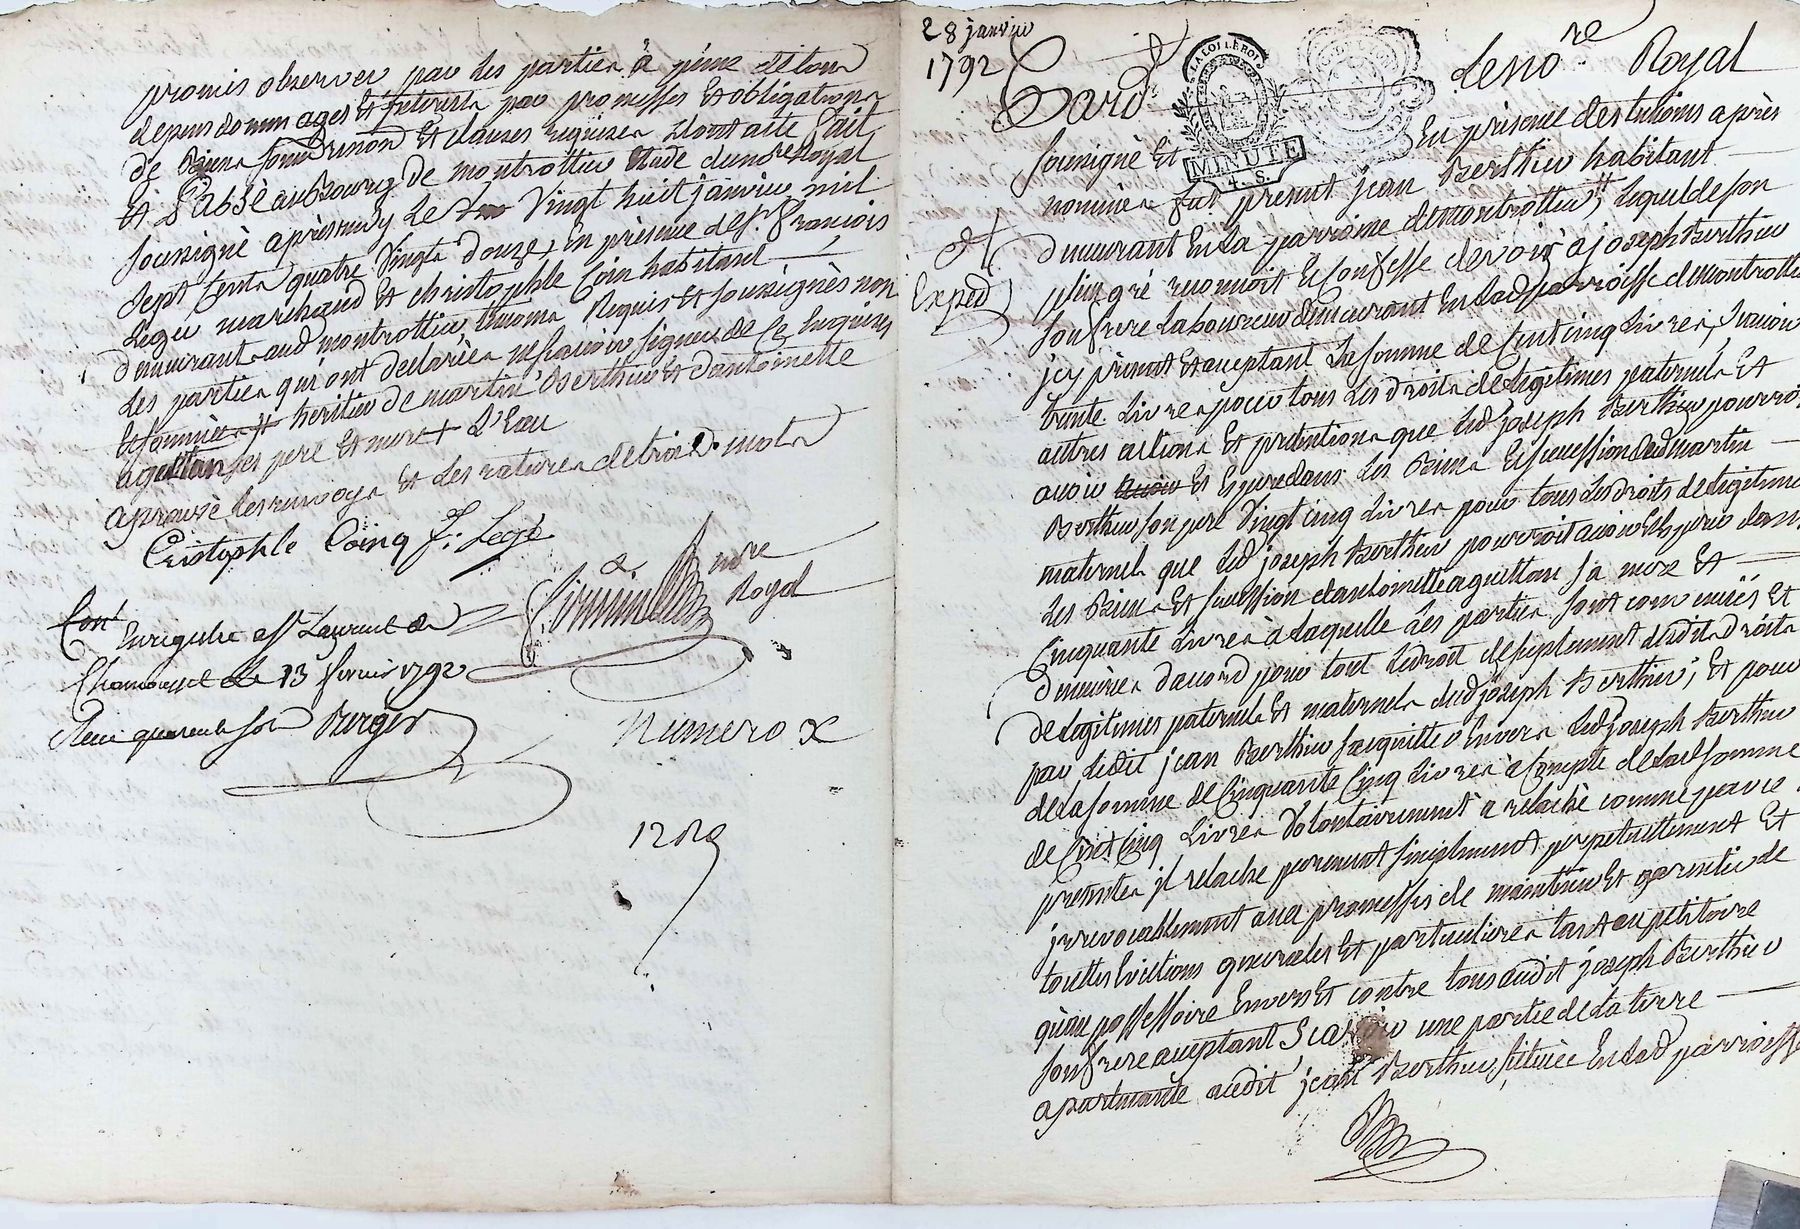 promis observer par les parties à peine de tous
depens dommages et interests par promesses et obligations
de Biens soumission et clauses requises dont acte fait
et Passé au Bourg de montrottier Etude du nore Royal
soussigné après midy le Vingt huit janvier mil
sept Cents quatre Vingts douze, En présence de sr. francois
Legér marchand et christophle Coin habitant
demeurants aud montrottier, temoins Requis et soussignés non
les parties qui ont declarées ne sçavoir signer de ce Enquises
et sommées heritier de martin Berthier et d'antoinette
aguittan ses pere et mere + L'eau
aprouvé les renvoys et les ratures de trois mots
Cristophle Coinq f: Legé
nore
Royal
Cont
Enregistré a St Laurent de
Chamousset le 13 fevrier 1792
Reçu quarente sols Berger
Numero X
28 janvier
1792
Pard.
LA LOI LE ROI
MINUTE
4. S.
le no.re Royal
soussigné Et En présence des temoins après
nommées fut présent jean Berthier habitant
demeurant En la parroisse de montrottier lequel de son
Exped
plein gré reconnoit et Confesse devoir à joseph Berthier
son frere laboureur demeurant En lad parroisse de montrottier
jcy présent et acceptant la somme de Cent cinq livres, sçavoir
trente livres pour tous les droits de légitimes paternels et
autres actions et prétentions que led joseph Berthier pourroit
avoir et Esperer dans les Biens et succession dud martin
Berthier son pere Vingt cinq livres pour tous les droits de légitime
maternels que led joseph Berthier pourroit avoir et Esperer dans
les Biens et succession d'antoinette aguittan sa mere et
Cinquante livres à laquelle les parties sont convenues et
demeurées d'accord pour tout le droit de suplement desdits droits
de légitimes paternels et maternels dud joseph Berthier; Et pour
par ledit jean Berthier s'acquitter Envers led joseph Berthier
de la somme de Cinquante Cinq livres à Compte de lad somme
de Cent Cinq livres Volontairement a relaché comme par ces
presentes jl relache purement simplement perpetuellement et
jrrevocablement avec promesses de maintenir et garentir de
touttes Evictions generales et particulieres tant au petitoire
qu'au possessoire Envers et contre tous audit joseph Berthier
son frere acceptant Sçavoir une partie de la terre
apartenante audit jean Berthier, située En lad parroisse